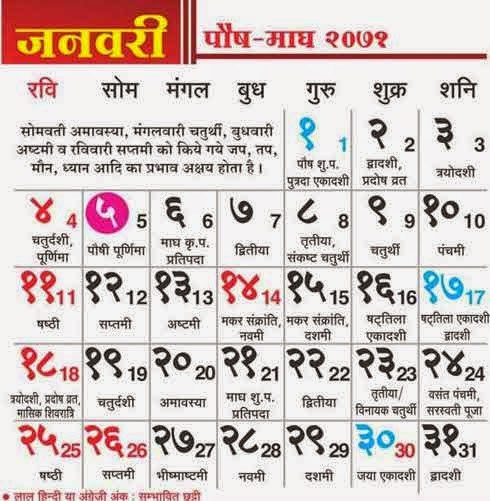 जनवरी
पौष-माघ २०७१
रवि सोम मंगल बुध गुरु शुक्र शनि
सोमवती अमावस्या, मंगलवारी चतुर्थी, बुधवारी
अष्टमी व रविवारी सप्तमी को किये गये जप, तप,
मौन, ध्यान आदि का प्रभाव अक्षय होता है।
१ 1 २ 2 ३ 3
पौष शु.प. द्वादशी, त्रयोदशी
पुत्रदा एकादशी प्रदोष व्रत
४ 4 ५ 5 ६ 6 ७ 7 ८ 8 ९ 9 १० 10
चतुर्दशी, पौषी पूर्णिमा माघ कृ.प. द्वितीया तृतीया, चतुर्थी पंचमी
पूर्णिमा प्रतिपदा संकष्ट चतुर्थी
११ 11 १२ 12 १३ 13 १४ 14 १५ 15 १६ 16 १७ 17
षष्ठी सप्तमी अष्टमी मकर संक्रांति, मकर संक्रांति, षट्तिला षट्तिला एकादशी
नवमी दशमी एकादशी द्वादशी
१८ 18 १९ 19 २० 20 २१ 21 २२ 22 २३ 23 २४ 24
त्रयोदशी, प्रदोष व्रत, चतुर्दशी अमावस्या माघ शु.प. द्वितीया तृतीया/ वसंत पंचमी,
मासिक शिवरात्रि प्रतिपदा विनायक चतुर्थी सरस्वती पूजा
२५ 25 २६ 26 २७ 27 २८ 28 २९ 29 ३० 30 ३१ 31
षष्ठी सप्तमी भीष्माष्टमी नवमी दशमी जया एकादशी द्वादशी
• लाल हिन्दी या अंग्रेजी अंक : सम्भावित छुट्टी